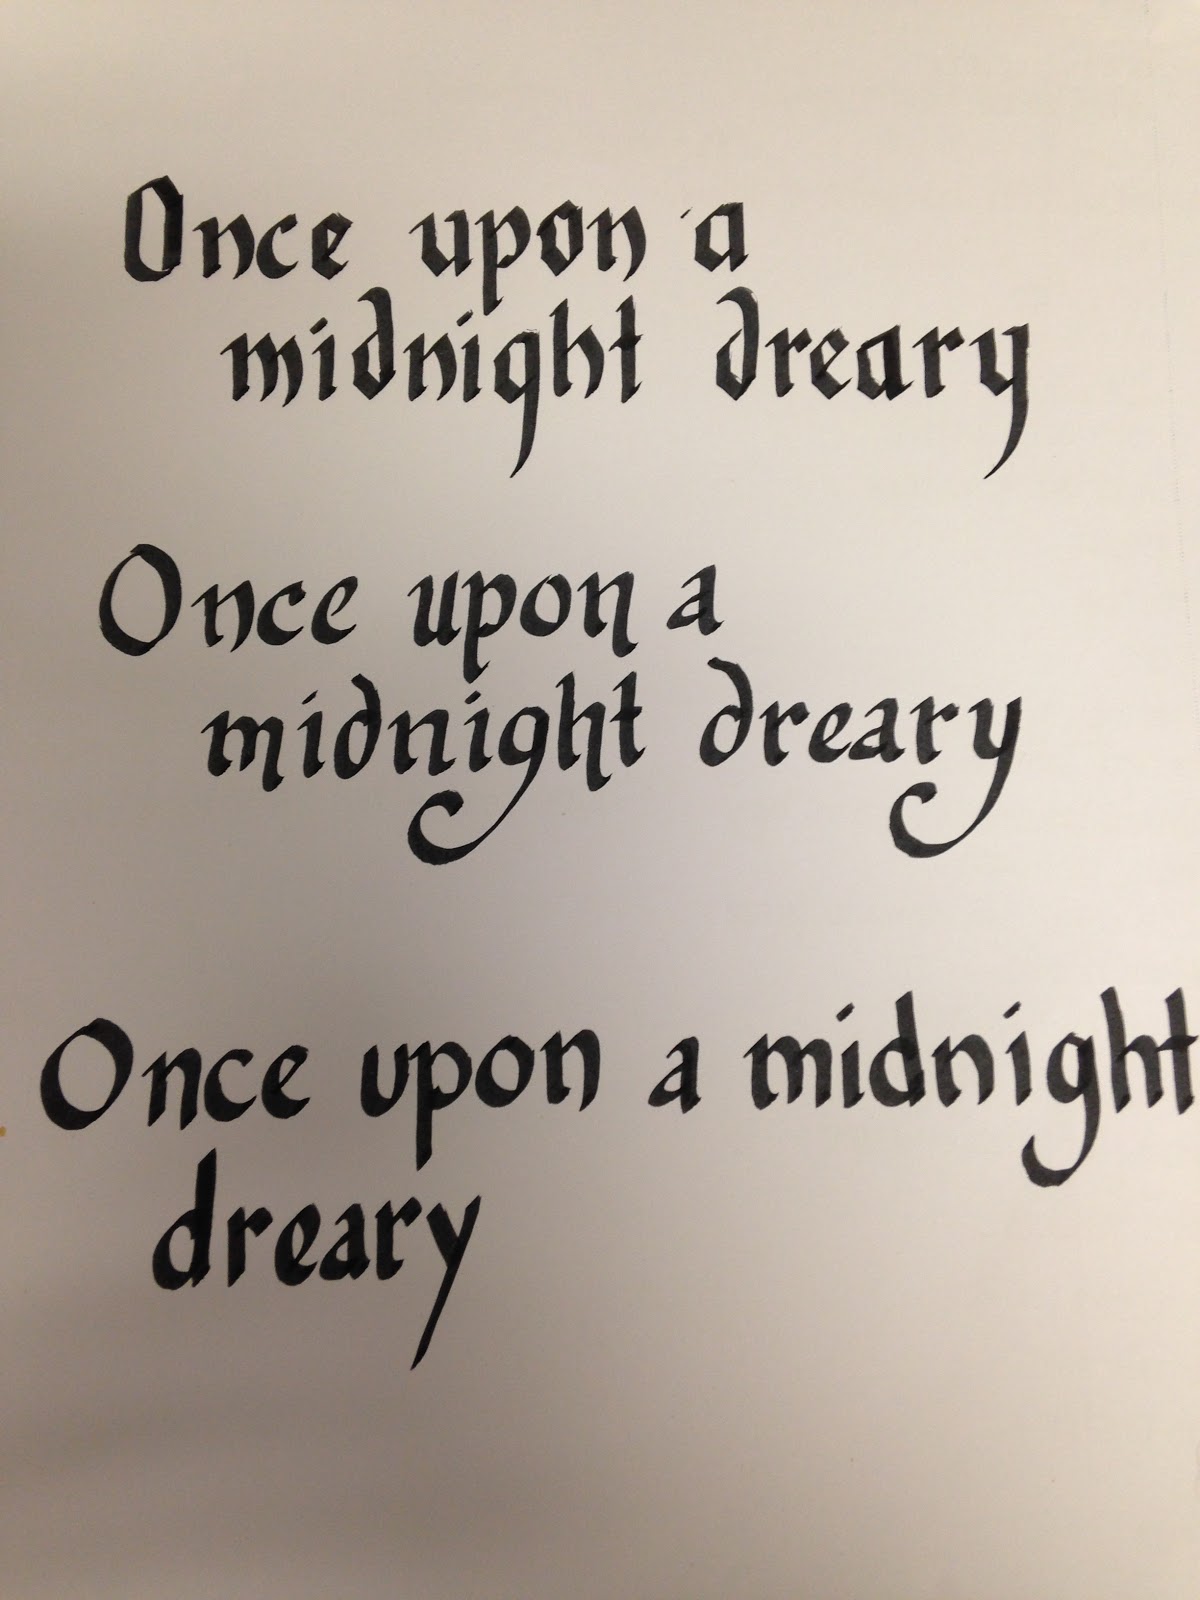 Once upon a
midnight dreary
Once upon a
midnight dreary
Once upon a midnight
dreary